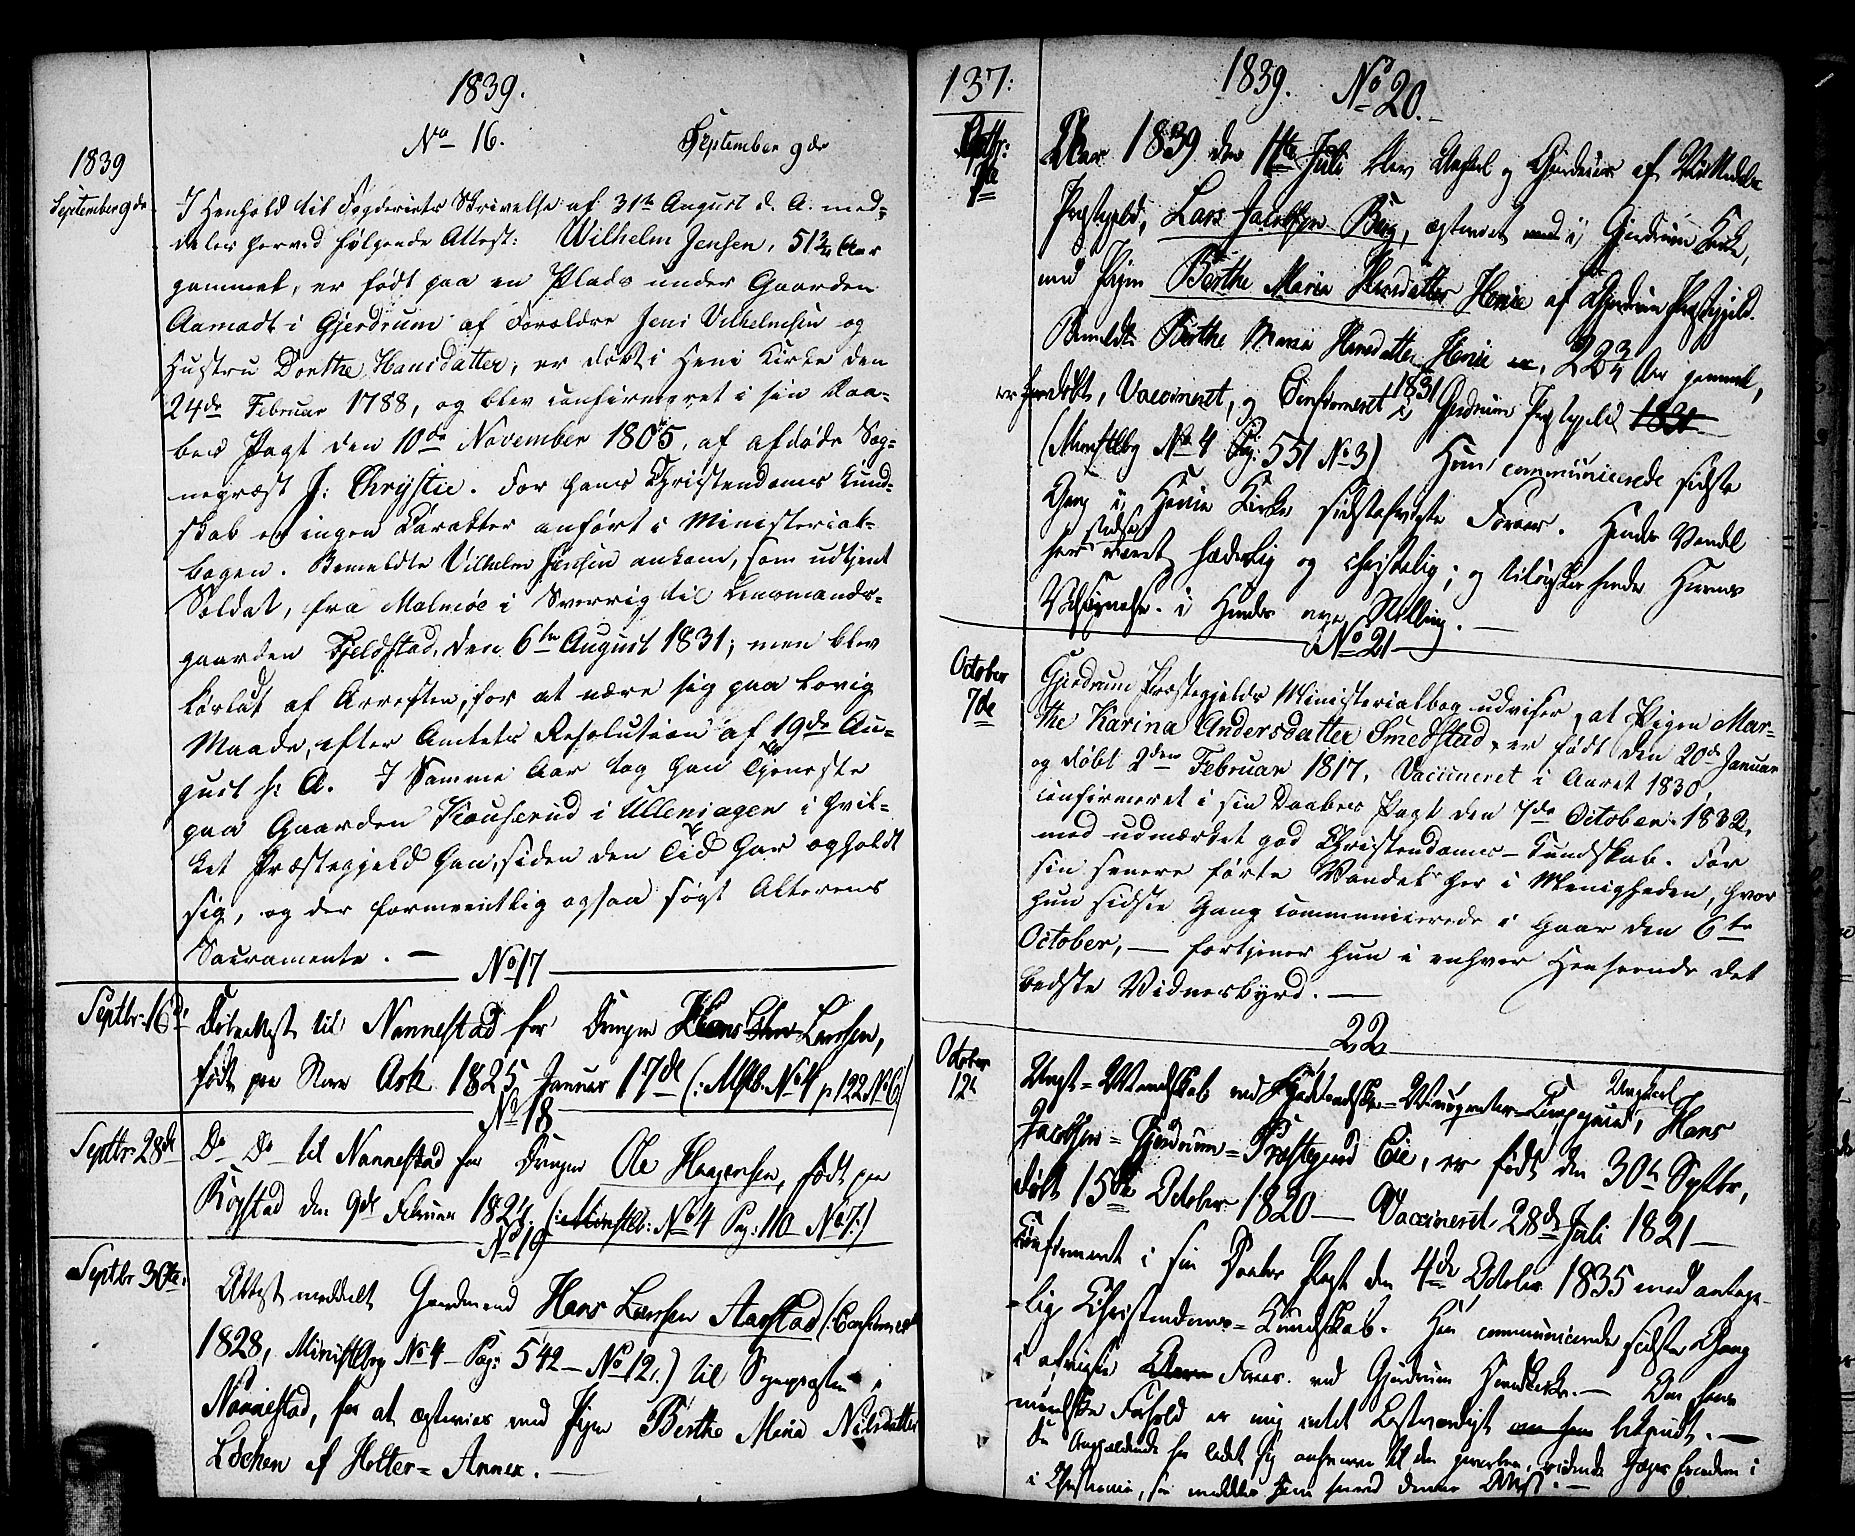 1839.
No 16.
September 9de
1839
September 9de
I Henhold til Fogderiets Skrivelse af 31te August d. A. med-
deles herved følgende Attest: Wilhelm Jensen, 51 3/4 Aar
gammel, er født paa en Plads under Gaarden
Aamodt i Gjerdrum af Forældre Jens Vilhelmsen og
Hustru Dorthe Hansdatter, er døbt i Heni Kirke den
24de Februar 1788, og blev confirmeret i sin Daa-
bes Pagt den 10de November 1805, af afdøde Sog-
nepræst J: Chrystie. For hans Christendoms Kund-
skab er ingen Karakter anført i Ministerial-
bogen. Bemeldte Vilhelm Jensen ankom, som udtjent
Soldat, fra Malmøe i Sverrig til Lensmands-
gaarden Fjeldstad, den 6te August 1831; men blev
løslat af Arresten, for at nære sig paa lovlig
Maade, efter Amtets Resolution af 19de Au-
gust s: A. I Samme Aar tog han Tjeneste
paa Gaarden Kouserud i Ullensager i hvil-
ket Præstegjeld han, siden den Tid har opholdt
sig, og der formeentlig ogsaa søgt Alterens
Sacramente. —
No 17
Septbr: 16de
til Nannestad for Drengen Larssen,
født paa Ask 1825 Januar 17de (: Mstb. No 4 p. 122 No 6)
No 18
Septbr 28de
Do Do til Nannestad for Drengen Ole Haagensen, født paa
Kogstad den 9de Februar 1824. (: Ministlb: No 4 Pag: 110 No 7:)
No 19
Septbr 30te.
Attest meddelt Gaardmand Hans Larssen Aarstad (: Confirmeret
1828, Ministlbog No 4 Pag: 542 - No 12.) til Sognepresten i
Nannestad, for at ægtevies med Pigen Berthe Maria Nilsdatter
Løchen af Holter = Annex. —
137:
1839. No 20.
Octb:
7de
Aar 1839 den Juli blev Ungkarl og af
Præstegjeld, Lars Jacobsen Berg, ægteviet i Gjerdrum Kirke,
med Pigen Berthe Maria Hansdatter Henie af Gjerdrum Præstegjeld.
Bemeldte Berthe Maria Hansdatter Henie, 22 3/4 Aar gammel,
er døbt, Vaccineret, og Confirmeret 1831 i Gjerdrum Præstegjeld 1831
(Ministlbog No 4 Pag: 551 No 3) Hun communicerede sidste
Gang i Henie Kirke sidstafvigte Foraar. Hendes Vandel
har stedse været hæderlig og christelig; og tilønskes hende Herrens
Velsignelse i Hendes nye Stilling. —
No 21
October
7de
Gjerdrum Præstegjelds Ministerialbog udviser, at Pigen Mar-
the Karina Andersdatter Smedstad, er født den 20de Januar
og døbt 2den Februar 1817, Vaccineret i Aaret 1830,
confirmeret i sin Daabes Pagt den 7de October 1832,
med udmærket god Christendoms-Kundskab. For
sin senere førte Vandel her i Menigheden, hvor
hun sidste Gang communicerede i Gaar den 6te
October, — fortjener hun i enhver Henseende det
bedste Vidnesbyrd. —
22
October
12te
Ungkarl Hans
Jacobsen = Gjerdrum = Præstegaard Eie, er født den 30te Sptbr,
døbt 15de October 1820 — Vaccineret 28de Juli 1821 —
Confirmeret i sin Daabes Pagt den 4de October 1835 med antage-
lig Christendoms = Kundskab. Han communicerede sidste Gang
i afvigte Foraar ved Gjerdrum Hovedkirke. — Om hans
moralske Forhold er mig intet Lastværdigt bekjendt. —
Da Angjældende har ladet sig til den ridende Jæger i
i Christiania, saa meddeles ham herved denne Attest. —